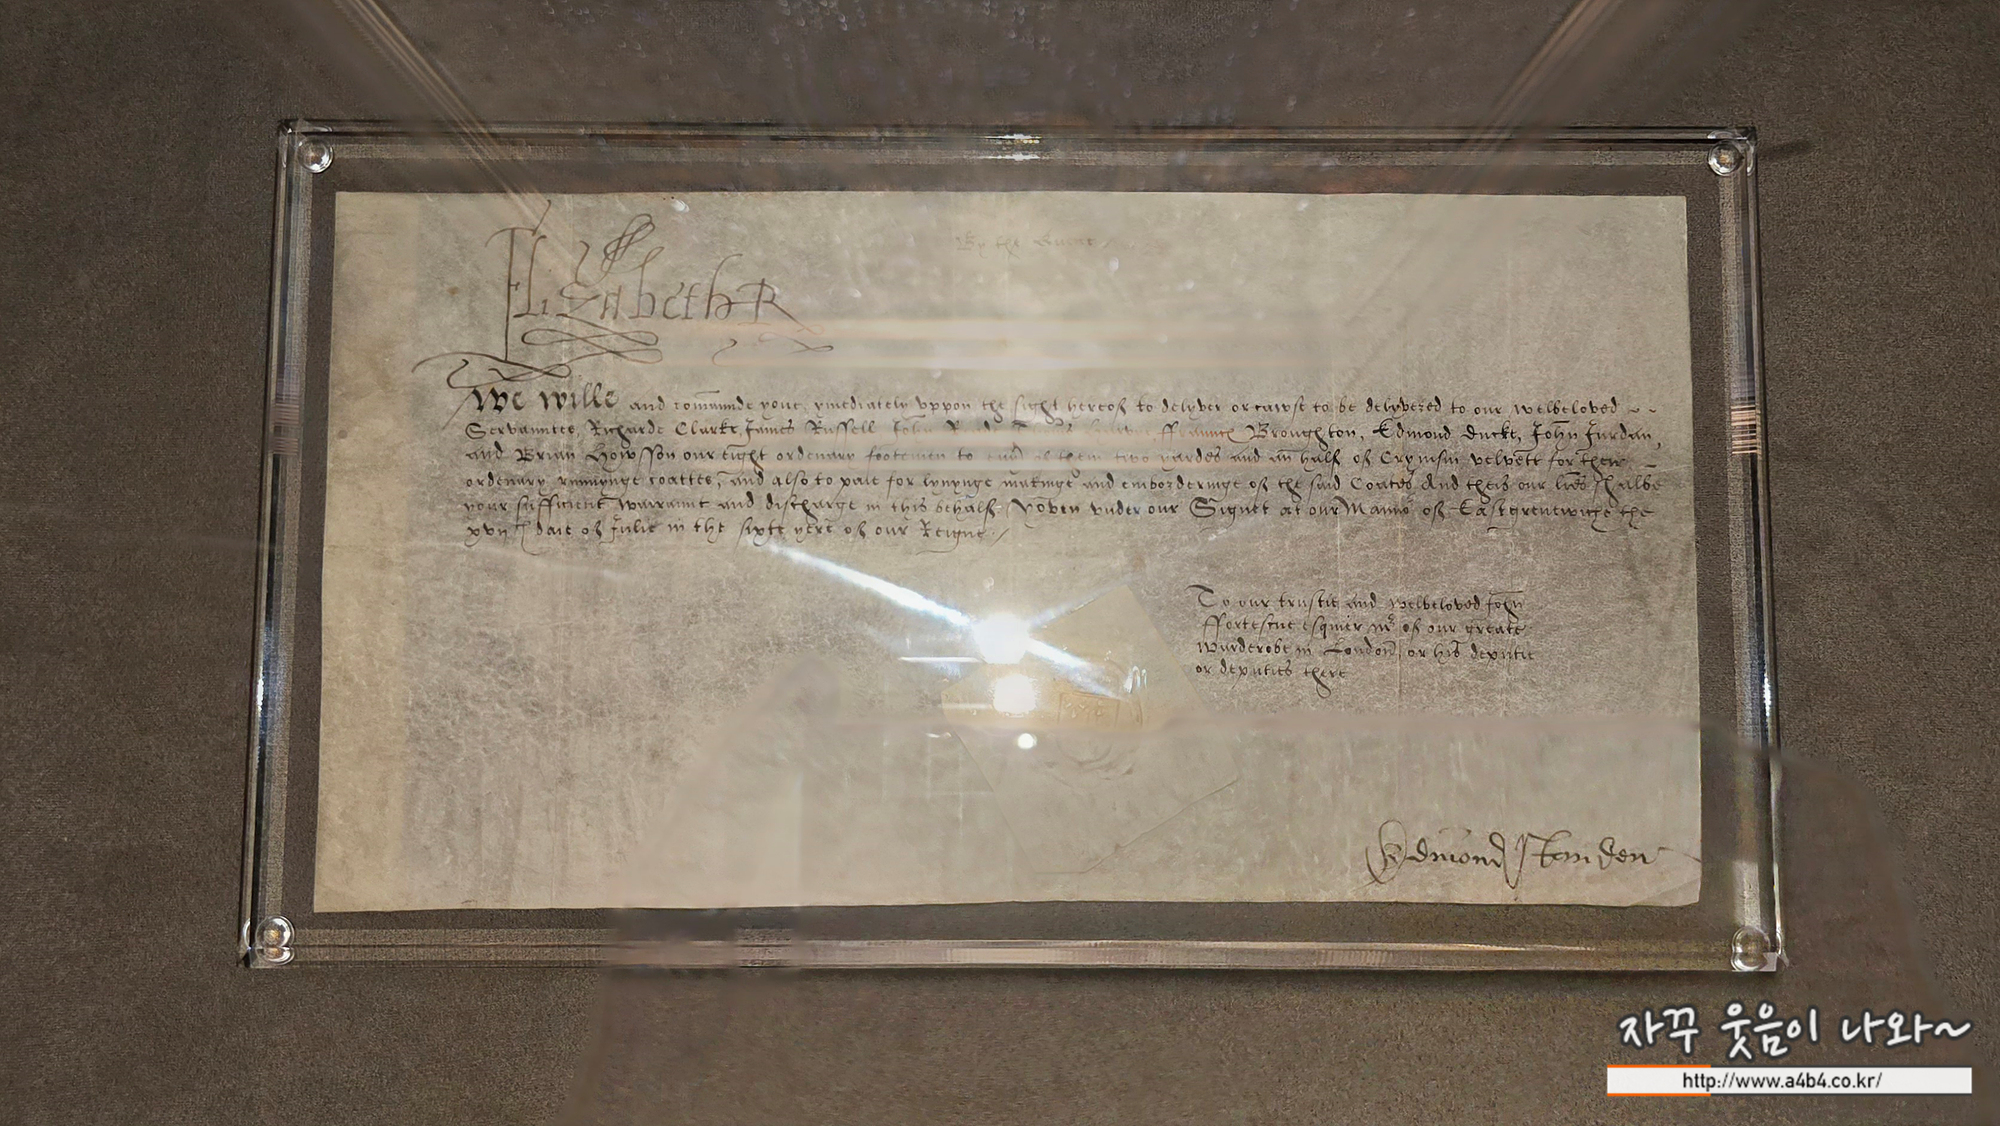 By the Quene
Elizabeth R
We wille and comaunde youe, ymediately vppon the sight hereof to delyver or cawse to be delyvered to our welbeloved
Servauntes, Richarde Clarke, James Russell John Broughton, Edmond Duckt, John Jurdan,
and Brian Howsson our eight ordenary footemen to of them two yardes and an half of Crymsin velvett for their
ordenary runnynge coattes, and also to paie for lynynge makinge and emborderinge of the said Coates And theis our shalbe
your sufficient warraunt and discharge in this behalf. Yoven vnder our Signet at our Manno of Eastgrenewiche the
xvii daie of Julie in the sixte yere of our Reigne
To our trustie and welbeloved John
ffortescue esquier of our greate
warderobe in London, or his deputie
or deputies there
Edmond Standen
자꾸 웃음이 나와~
http://www.a4b4.co.kr/